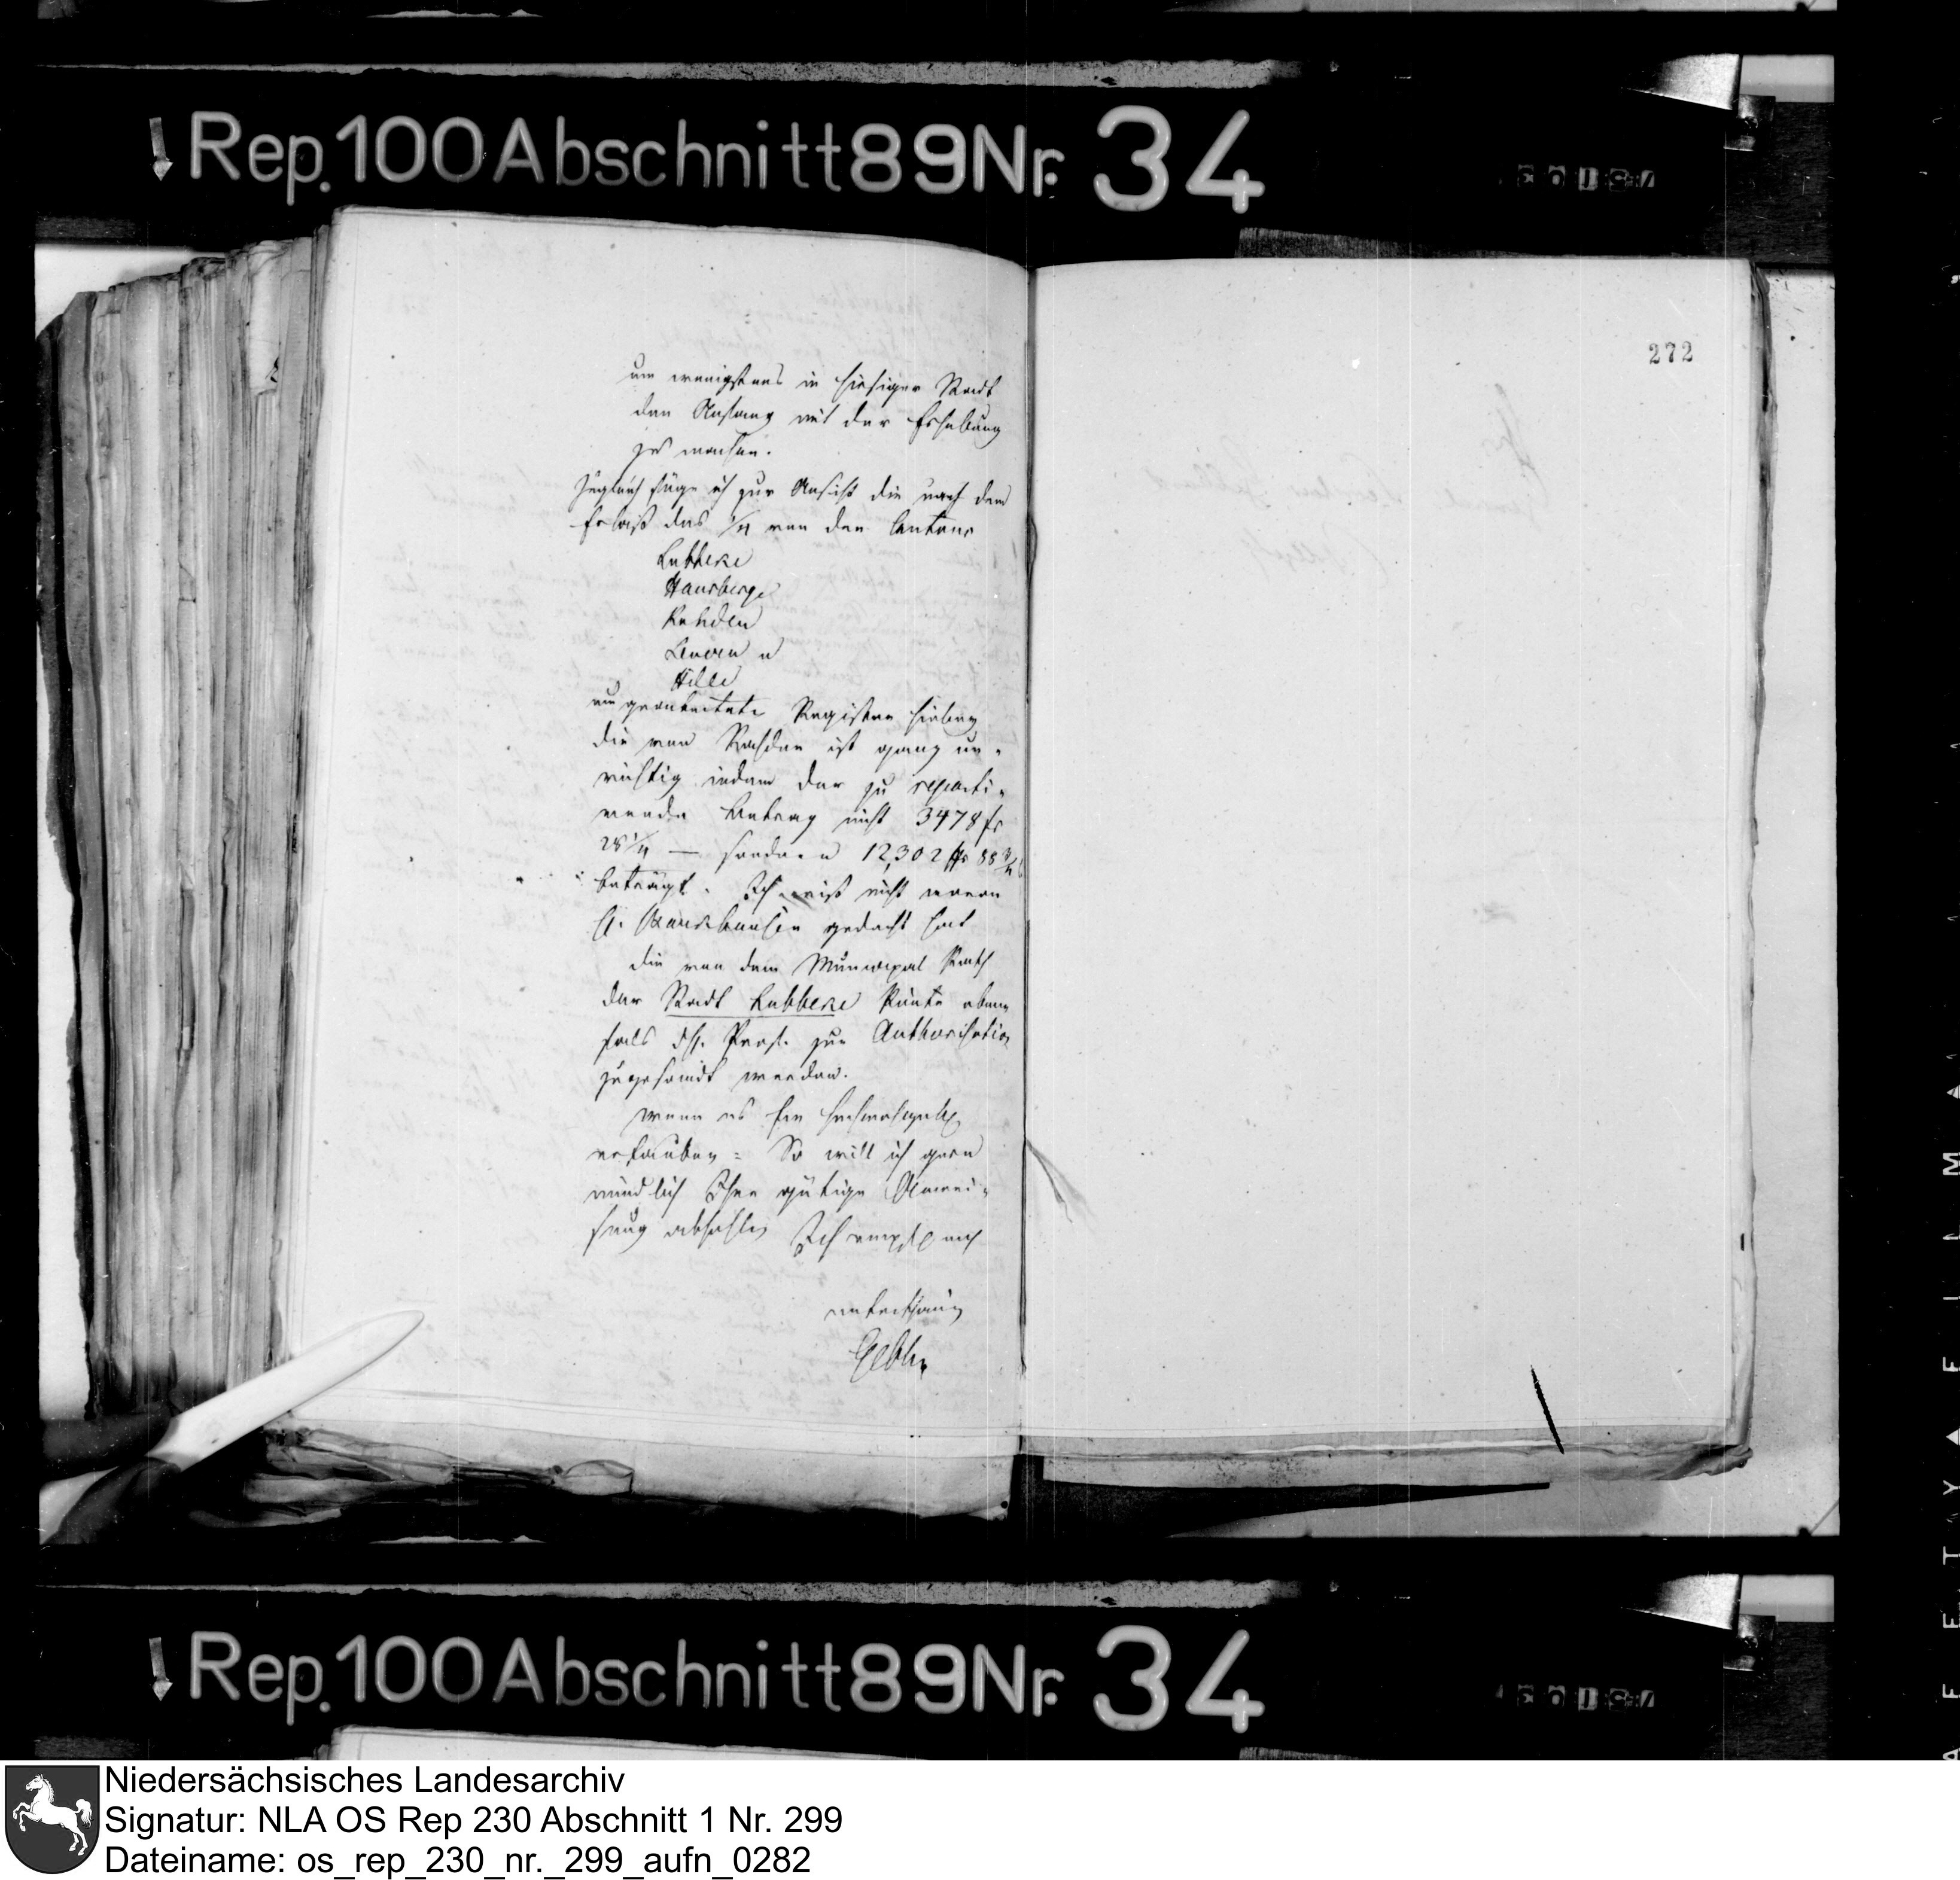 Rep. 100 Abschnitt 89 Nr. 34
272
um wenigstens in hiesiger Stadt
den Anfang mit der Erhebung
zu machen.
Zugleich füge ich zur Ansicht die nach dem
Erlaß des 1/4 von den Cantons
Lubbeke
Hausberge
Rahden
Levern u
Hille
umgearbeitete Register hierbey
die von Rahden ist ganz un-
richtig indem der zu reparti-
rende Betrag nicht 3478 fr
28 1/4 — sondern 12,302 fr 88 3/4
beträgt. Ich weiß nicht woran
H. gedacht hat
die von dem Municipal Rath
der Stadt Lubbeke könte eben-
fals zur Authorisation
zugesandt werden.
wenn es Ew
erlauben = So will ich gern
mündlich Ihre gütige Anwei-
sung abhohlen Ich
Rep. 100 Abschnitt 89 Nr. 34
Niedersächsisches Landesarchiv
Signatur: NLA OS Rep 230 Abschnitt 1 Nr. 299
Dateiname: os_rep_230_nr._299_aufn_0282